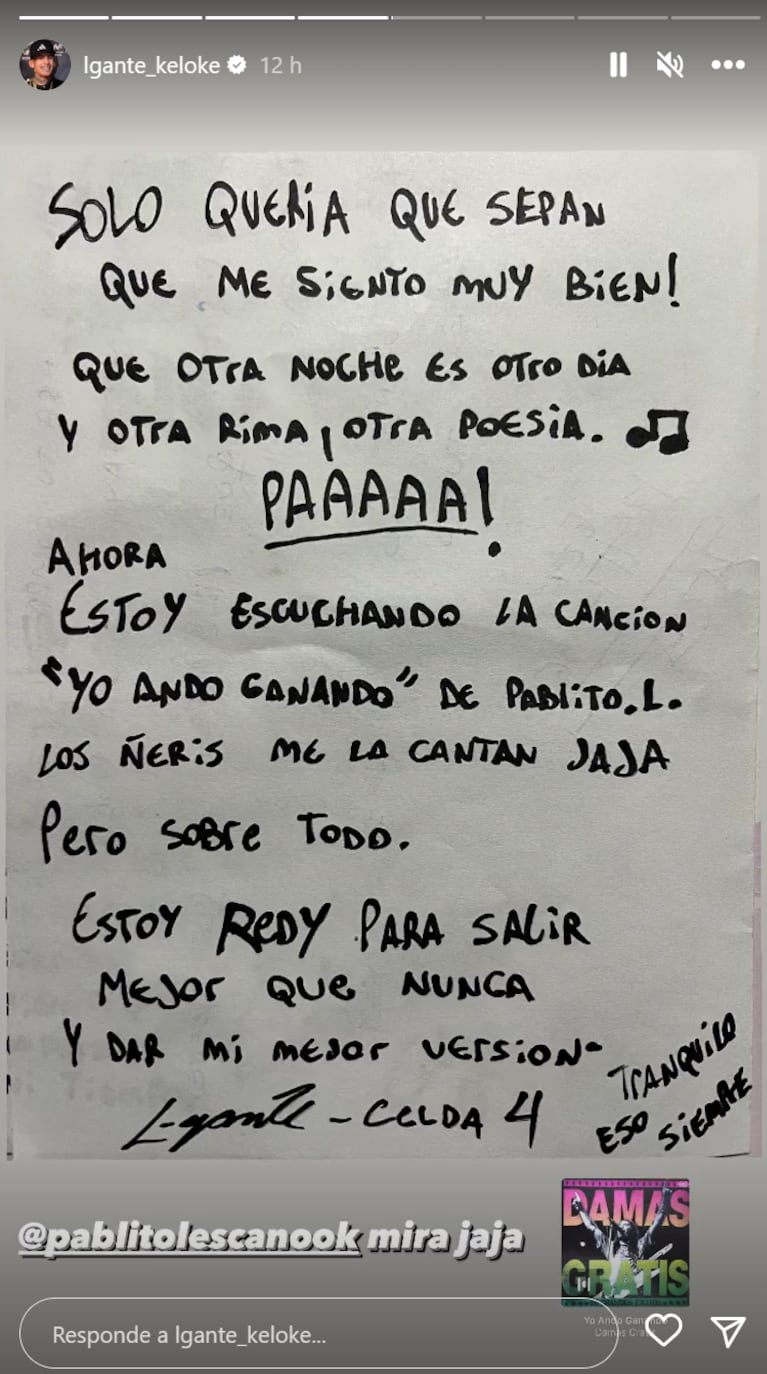 lgante_keloke 12 h
SOLO QUERiA QUE SEPAN
QUE ME SiENTO MUY BiEN!
QUE OTrA NOCHe Es OTro DiA
Y OTrA RiMA, OTrA POESiA.
PAAAAA!
AHORA
ESTOY ESCUCHANDO LA CANCiON
"YO ANDO GANANDO" DE PABLiTO.L.
LOS ÑERiS ME LA CANTAN JAJA
Pero SOBre TODO.
ESTOY ReDY PARA SALiR
MEJor QUe NUNCA
Y DAR Mi MEJor VErSiON-
TrANQUiLO
ESO SiEMPRE
L-gante - CELDA 4
@pablitolescanook mira jaja
DAMAS
GRATIS
Yo Ando Ganando
Damas Gratis
Responde a lgante_keloke...